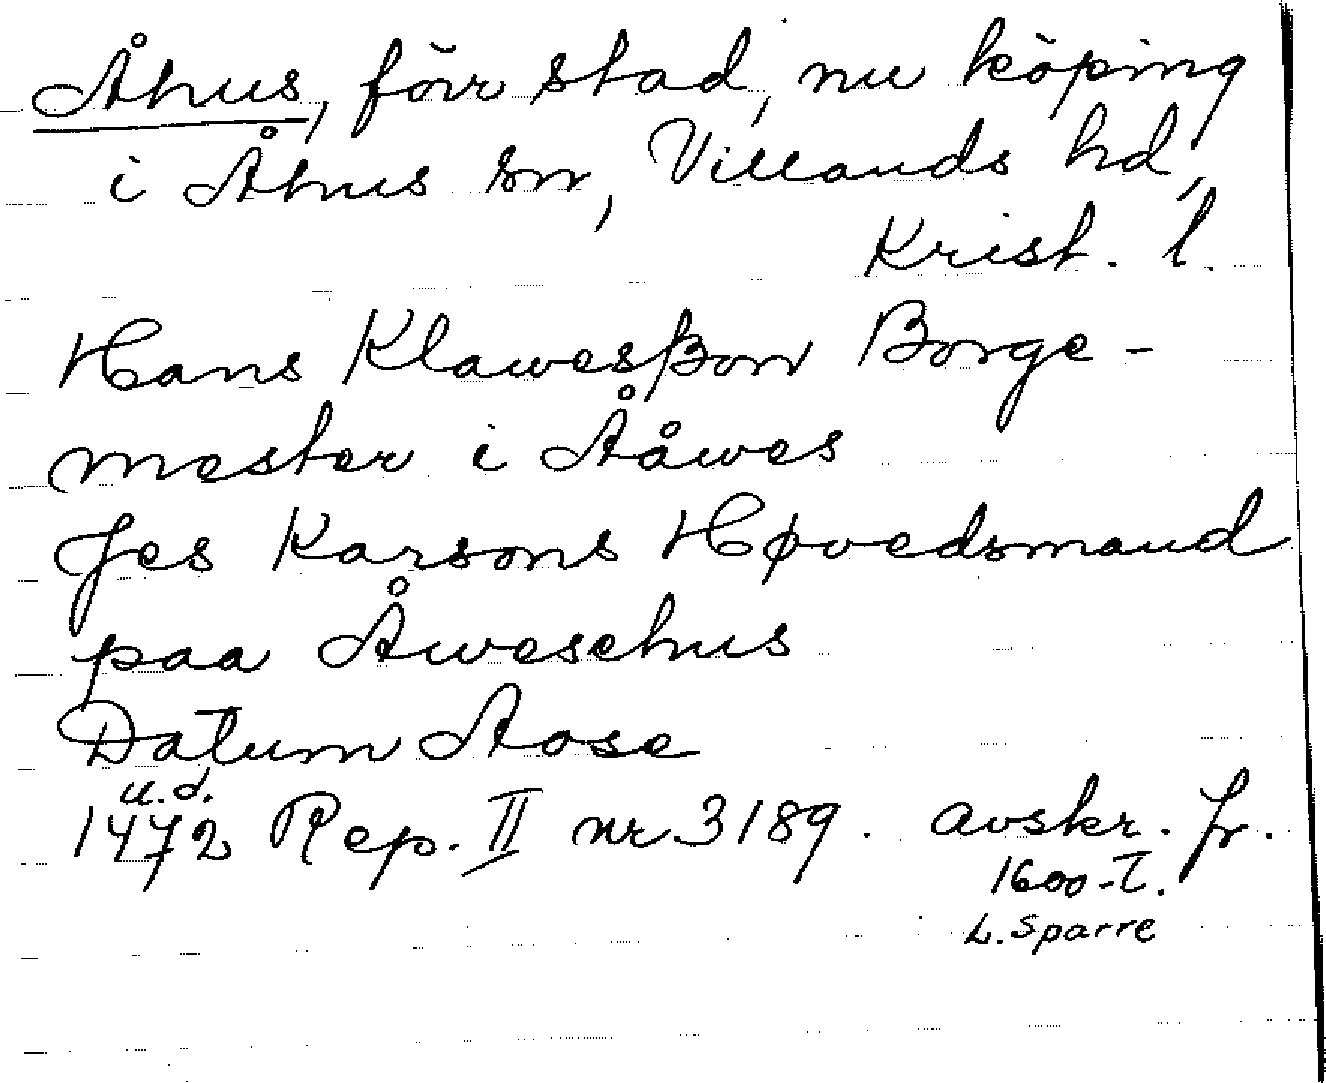 Åhus, förr stad, nu köping
i Åhus sn, Villands hd,
Krist. l.
Hans Klawesßon Borge-
mester i Ååwes
Jes Karsons Høvedsmand
paa Åweschus
Datum Aose
u.d.
1472 Rep. II nr 3189. avskr. fr.
1600-t.
L. Sparre